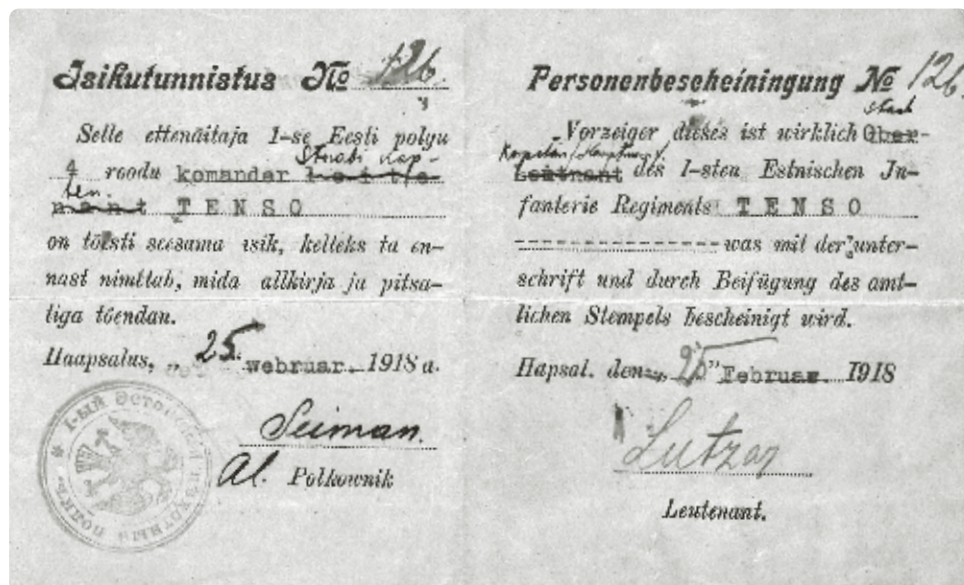 Isikutunnistus № 126
Selle ettenäitaja 1-se Eesti polgu
Staabi kap-
4 roodu komandar leitte-
ten.
nant TENSO
on tõesti seesama isik, kelleks ta en-
nast nimetab, mida allkirja ja pitsa-
tiga tõendan.
Haapsalus, „ 25 webruar. 1918 a.
Seiman.
Al. Polkownik
1-ЫЙ ЭСТОНСКІЙ ПѢХОТНЫЙ ПОЛКЪ
Personenbescheiningung № 126
Stab
Vorzeiger dieses ist wirklich Ober-
Kapitän/Hauptman/
Leutnant des 1-sten Estnischen In-
fanterie Regiments TENSO
was mit der unter-
schrift und durch Beifügung des amt-
lichen Stempels bescheinigt wird.
Hapsal. den „ 25 " Februar. 1918
Lutzar
Leutenant.